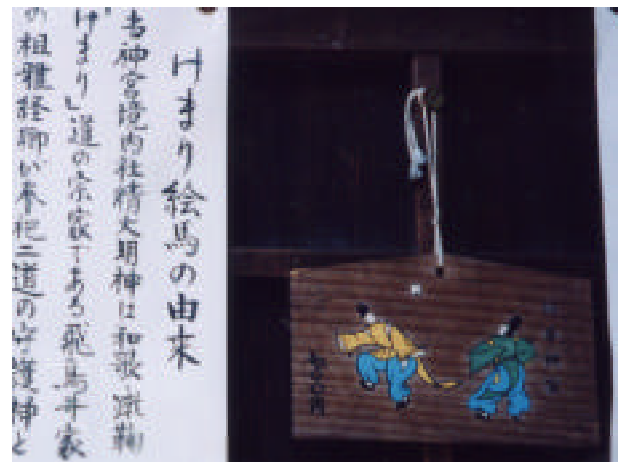 けまり絵馬の由来
当神宮境内社精大明神は和歌、蹴鞠
けまり」道の宗家である飛鳥井家
の祖雅経卿が本邦二道の守護神と